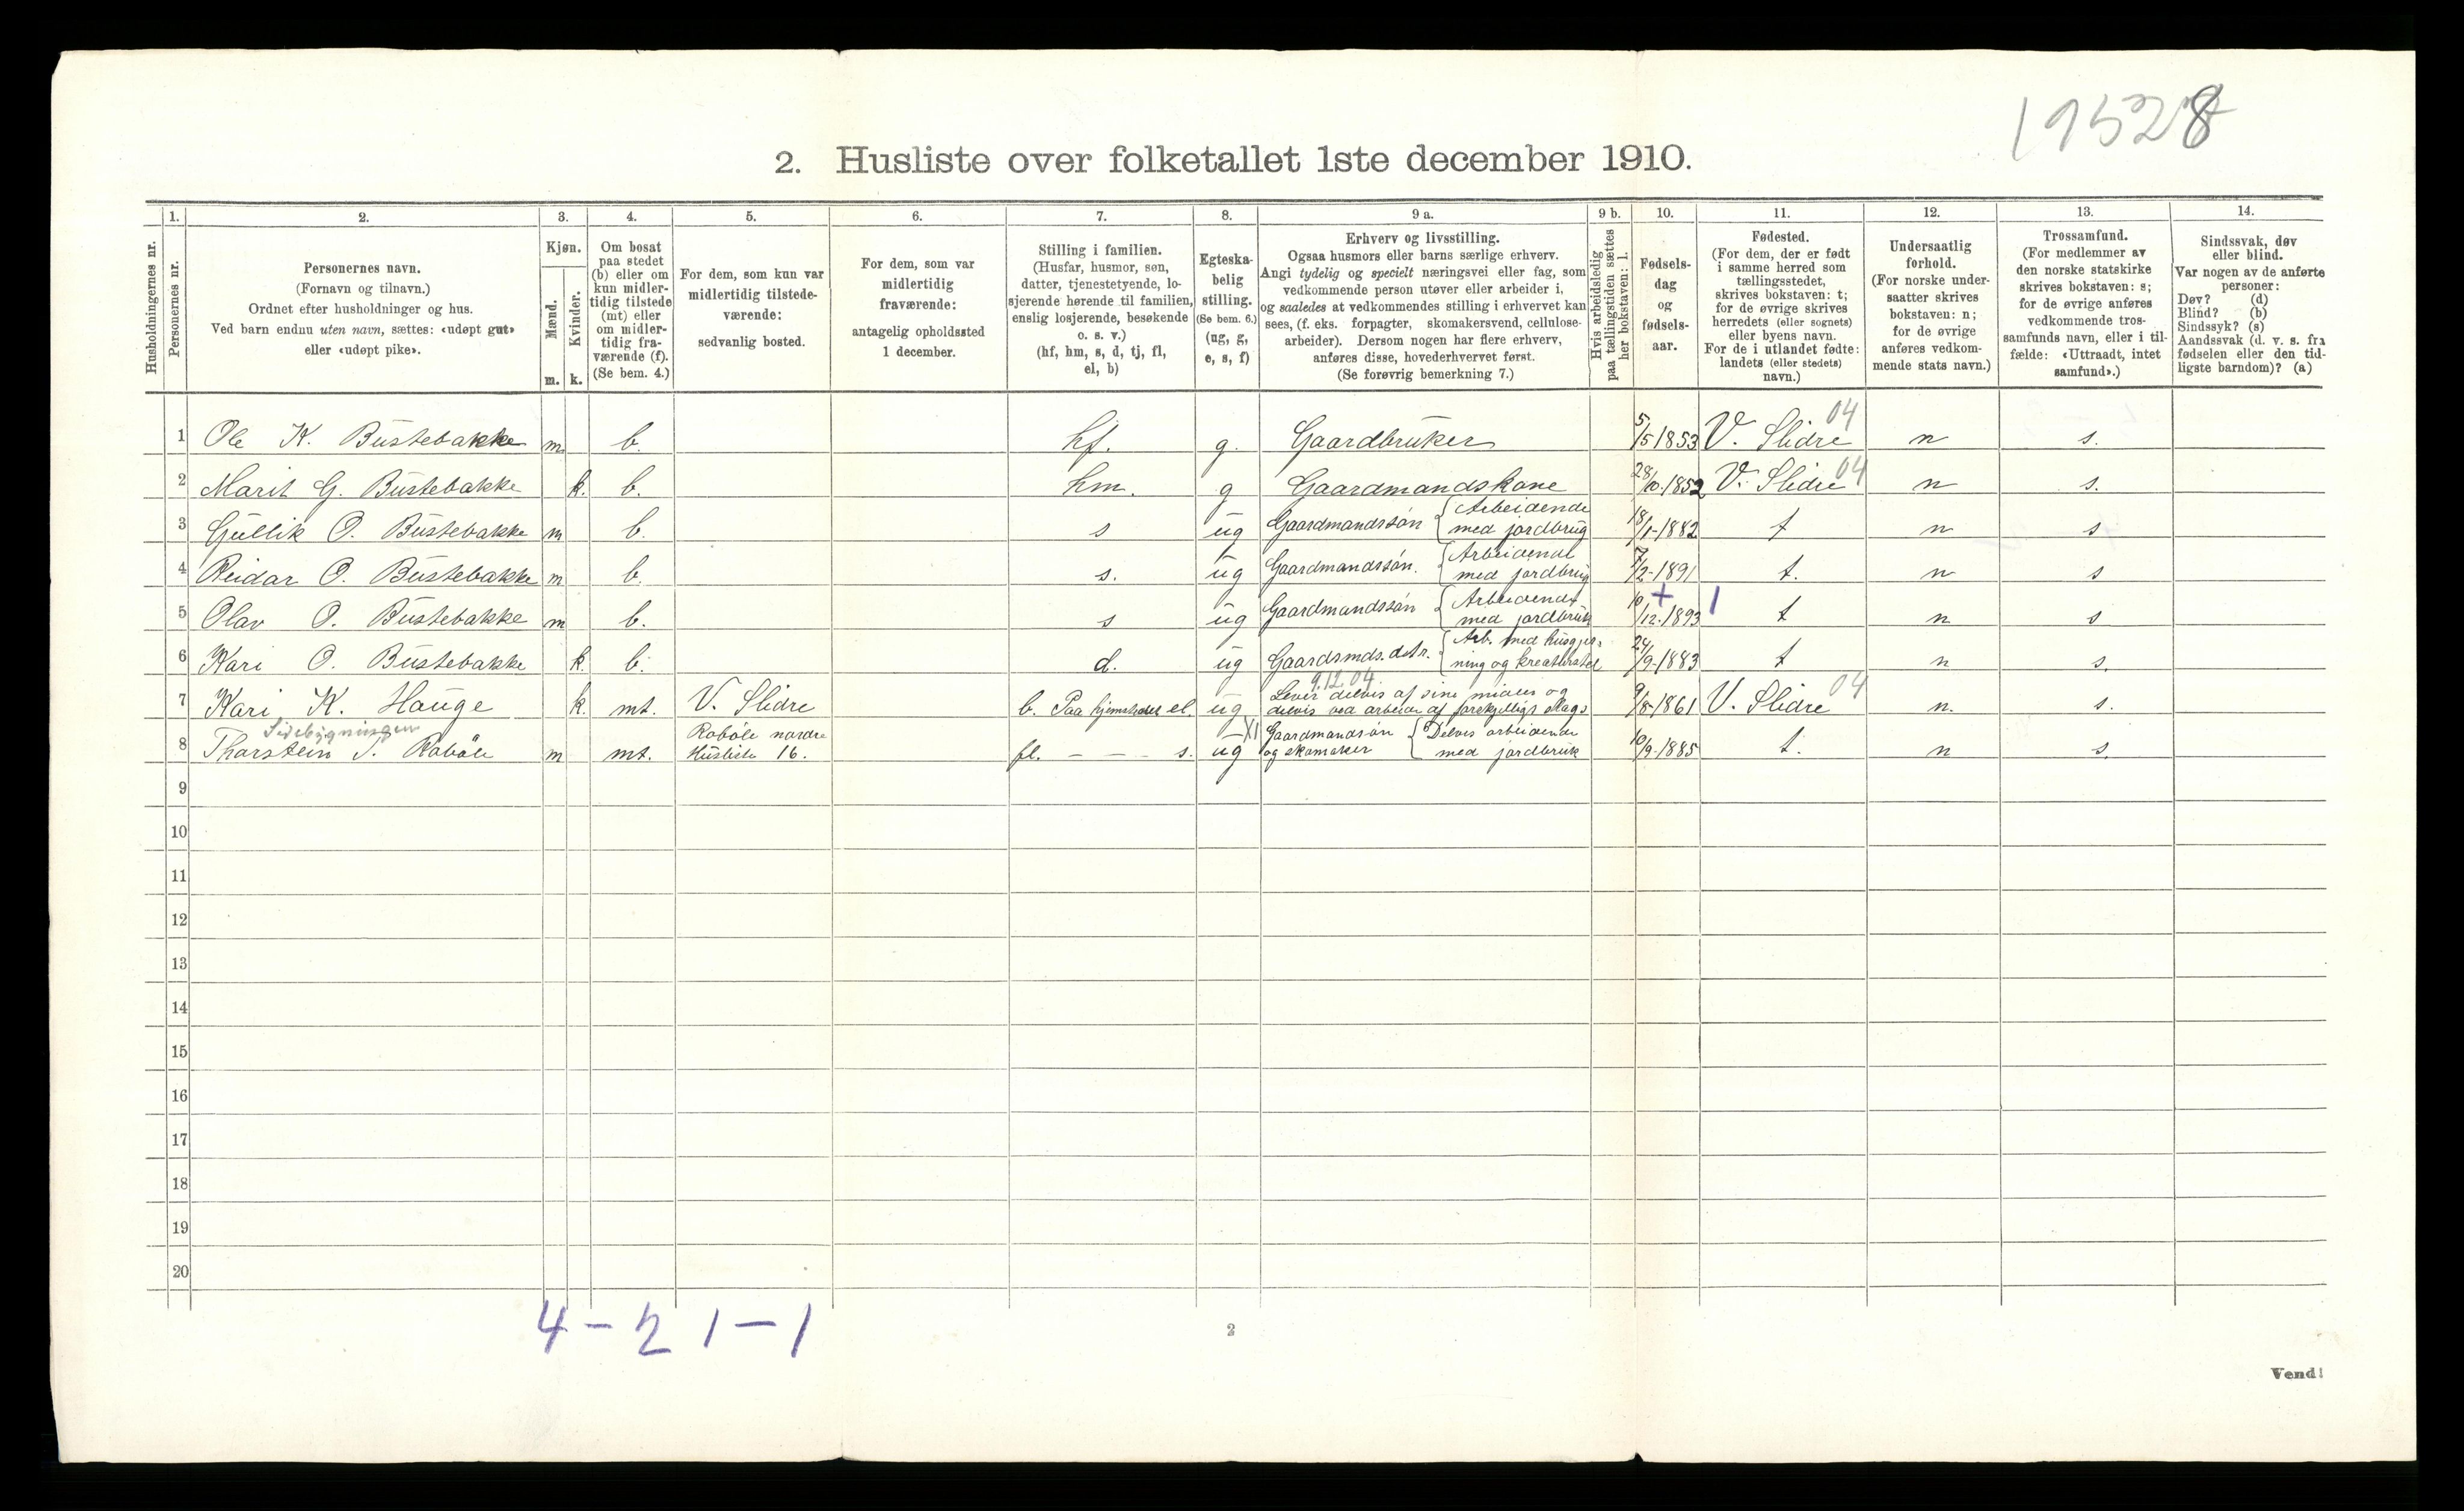 19528
2. Husliste over folketallet 1ste december 1910.
Husholdningernes nr.
1.
Personernes nr.
2.
Personernes navn.
(Fornavn og tilnavn.)
Ordnet efter husholdninger og hus.
Ved barn endnu uten navn, sættes: «udøpt gut»
eller «udøpt pike».
3.
Kjøn.
Mænd.
Kvinder.
m. k.
4.
Om bosat
paa stedet
(b) eller om
kun midler-
tidig tilstede
(mt) eller
om midler-
tidig fra-
værende (f).
(Se bem. 4.)
5.
For dem, som kun var
midlertidig tilstede-
værende:
sedvanlig bosted.
6.
For dem, som var
midlertidig
fraværende:
antagelig opholdssted
1 december.
7.
Stilling i familien.
(Husfar, husmor, søn,
datter, tjenestetyende, lo-
sjerende hørende til familien,
enslig losjerende, besøkende
o. s. v.)
(hf, hm, s, d, tj, fl,
el, b)
8.
Egteska-
belig
stilling.
(Se bem. 6.)
(ug, g,
e, s, f)
9 a.
Erhverv og livsstilling.
Ogsaa husmors eller barns særlige erhverv.
Angi tydelig og specielt næringsvei eller fag, som
vedkommende person utøver eller arbeider i,
og saaledes at vedkommendes stilling i erhvervet kan
sees, (f. eks. forpagter, skomakersvend, cellulose-
arbeider). Dersom nogen har flere erhverv,
anføres disse, hovederhvervet først.
(Se forøvrig bemerkning 7.)
9 b.
Hvis arbeidsledig
paa tællingstiden sættes
her bokstaven: l.
10.
Fødsels-
dag
og
fødsels-
aar.
11.
Fødested.
(For dem, der er født
i samme herred som
tællingsstedet,
skrives bokstaven: t;
for de øvrige skrives
herredets (eller sognets)
eller byens navn.
For de i utlandet fødte:
landets (eller stedets)
navn.)
12.
Undersaatlig
forhold.
(For norske under-
saatter skrives
bokstaven: n;
for de øvrige
anføres vedkom-
mende stats navn.)
13.
Trossamfund.
(For medlemmer av
den norske statskirke
skrives bokstaven: s;
for de øvrige anføres
vedkommende tros-
samfunds navn, eller i til-
fælde: «Uttraadt, intet
samfund».)
14.
Sindssvak, døv
eller blind.
Var nogen av de anførte
personer:
Døv? (d)
Blind? (b)
Sindssyk? (s)
Aandssvak (d. v. s. fra
fødselen eller den tid-
ligste barndom)? (a)
1 Ole K. Bustebakke m. b. hf. g. Gaardbruker 5/5 1853 V. Slidre 04 n s.
2 Marit G. Bustebakke k. b. hm. g Gaardmandskone 28/10-1852 V. Slidre 04 n s.
3 Gullik O. Bustebakke m b. s ug Gaardmandssøn { Arbeidende
med jordbrug 18/1-1882 t n s
4 Reidar O. Bustebakke m b. s. ug Gaardmandssøn. { Arbeidende
med jordbrug 7/2-1891 t. n s
5 Olav O. Bustebakke m b. s ug Gaardmandssøn { Arbeidende
med jordbruk 10/12-1893 + 1 t n s
6 Kari O. Bustebakke k. b. d. ug Gaardsmds. datr. { Arb. med husgjer-
ning og kreaturstel 24/9-1883 t n s.
9.12.04
7 Kari K. Hauge k. mt. V. Slidre b. Paa hjemstedet el. ug Lever delvis af sine midler og
delvis ved arbeide af forskjelligt slags 9/8-1861 V. Slidre 04 n. s.
Sidebygningen
8 Thorstein T. Robøle m mt. Robøle nordre
Husliste 16. fl. - - - s. ug XI Gaardmandssøn
og skomaker { Delvis arbeidende
med jordbruk 10/9-1885 t. n s.
9
10
11
12
13
14
15
16
17
18
19
20
4 - 2 1 - 1
2
Vend!